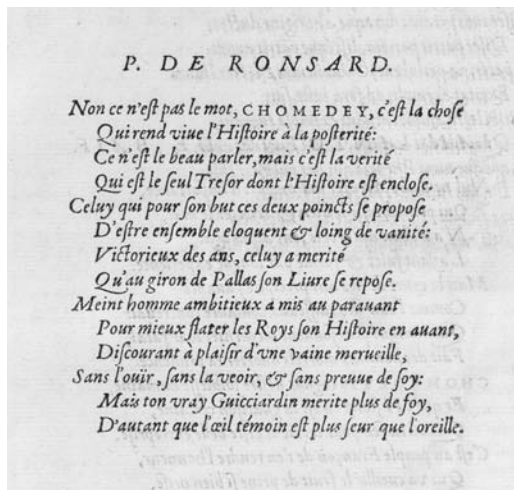 P. DE RONSARD.
Non ce n'eſt pas le mot, CHOMEDEY, c'eſt la choſe
Qui rend viue l'Hiſtoire à la poſterité:
Ce n'eſt le beau parler, mais c'eſt la verité
Qui eſt le ſeul Treſor dont l'Hiſtoire eſt encloſe.
Celuy qui pour ſon but ces deux poincts ſe propoſe
D'eſtre enſemble eloquent & loing de vanité:
Victorieux des ans, celuy a merité
Qu'au giron de Pallas ſon Liure ſe repoſe.
Meint homme ambitieux a mis au parauant
Pour mieux flater les Roys ſon Hiſtoire en auant,
Diſcourant à plaiſir d'vne vaine merueille,
Sans l'ouïr, ſans la veoir, & ſans preuue de ſoy:
Mais ton vray Guicciardin merite plus de foy,
D'autant que l'œil témoin eſt plus ſeur que l'oreille.